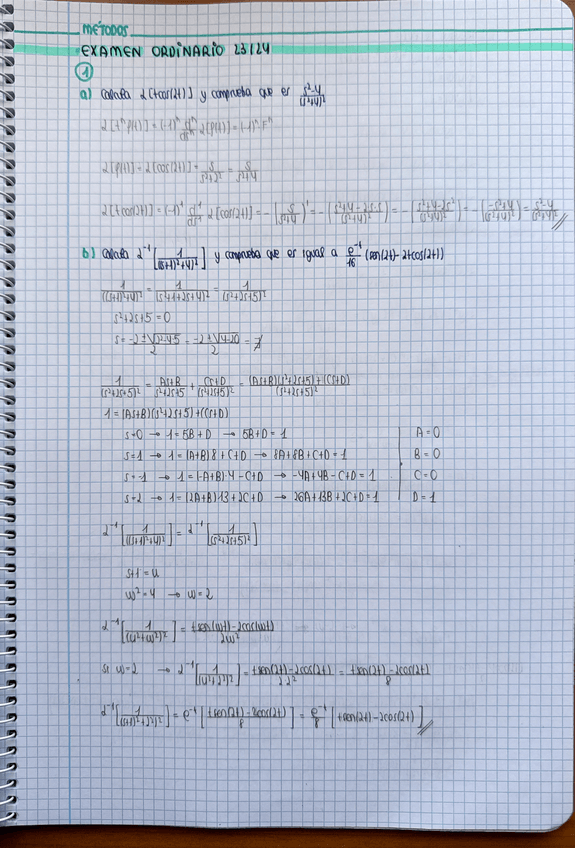 MÉTODOS
EXAMEN ORDINARIO 23/24
①
a) Calcula ℒ[tcos(2t)] y comprueba que es (s²-4)/(s²+4)²
ℒ[tⁿf(t)] = (-1)ⁿ dⁿ/dsⁿ ℒ[f(t)] = (-1)ⁿ·Fⁿ
ℒ[f(t)] = ℒ[cos(2t)] = s/(s²+2²) = s/(s²+4)
ℒ[tcos(2t)] = (-1)¹ d¹/ds¹ ℒ[cos(2t)] = -(s/(s²+4))' = -((s²+4-2s·s)/(s²+4)²) = -((s²+4-2s²)/(s²+4)²) = -((-s²+4)/(s²+4)²) = (s²-4)/(s²+4)²
b) Calcula ℒ⁻¹[1/((s+1)²+4)²] y comprueba que es igual a e⁻ᵗ/16 (sen(2t)-2tcos(2t))
1/((s+1)²+4)² = 1/(s²+1+2s+4)² = 1/(s²+2s+5)²
s²+2s+5=0
s = (-2±√(2²-4·5))/2 = (-2±√(4-20))/2 = ∄
1/(s²+2s+5)² = (As+B)/(s²+2s+5) + (Cs+D)/(s²+2s+5)² = ((As+B)(s²+2s+5)+(Cs+D))/(s²+2s+5)²
1 = (As+B)(s²+2s+5)+(Cs+D)
s=0 → 1=5B+D → 5B+D=1 A=0
s=1 → 1=(A+B)8+C+D → 8A+8B+C+D=1 B=0
s=-1 → 1=(-A+B)·4-C+D → -4A+4B-C+D=1 C=0
s=2 → 1=(2A+B)·13+2C+D → 26A+13B+2C+D=1 D=1
ℒ⁻¹[1/((s+1)²+4)²] = ℒ⁻¹[1/(s²+2s+5)²]
s+1=u
w²=4 → w=2
ℒ⁻¹[1/(u²+w²)²] = (tsen(wt)-2cos(wt))/2w²
si w=2 → ℒ⁻¹[1/(u²+2²)²] = (tsen(2t)-2cos(2t))/2·2² = (tsen(2t)-2cos(2t))/8
ℒ⁻¹[1/((s+1)²+2²)²] = e⁻ᵗ[(tsen(2t)-2cos(2t))/8] = e⁻ᵗ/8 [tsen(2t)-2cos(2t)]